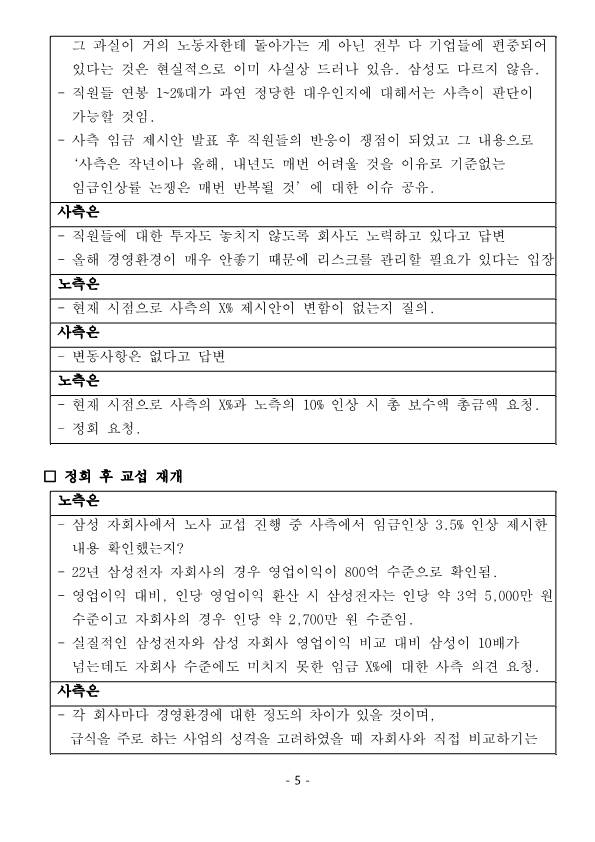 그 과실이 거의 노동자한테 돌아가는 게 아닌 전부 다 기업들에 편중되어
있다는 것은 현실적으로 이미 사실상 드러나 있음. 삼성도 다르지 않음.
- 직원들 연봉 1~2%대가 과연 정당한 대우인지에 대해서는 사측이 판단이
가능할 것임.
- 사측 임금 제시안 발표 후 직원들의 반응이 쟁점이 되었고 그 내용으로
‘사측은 작년이나 올해, 내년도 매번 어려울 것을 이유로 기준없는
임금인상률 논쟁은 매번 반복될 것’ 에 대한 이슈 공유.
사측은
- 직원들에 대한 투자도 놓치지 않도록 회사도 노력하고 있다고 답변
- 올해 경영환경이 매우 안좋기 때문에 리스크를 관리할 필요가 있다는 입장
노측은
- 현재 시점으로 사측의 X% 제시안이 변함이 없는지 질의.
사측은
- 변동사항은 없다고 답변
노측은
- 현재 시점으로 사측의 X%과 노측의 10% 인상 시 총 보수액 총금액 요청.
- 정회 요청.
□ 정회 후 교섭 재개
노측은
- 삼성 자회사에서 노사 교섭 진행 중 사측에서 임금인상 3.5% 인상 제시한
내용 확인했는지?
- 22년 삼성전자 자회사의 경우 영업이익이 800억 수준으로 확인됨.
- 영업이익 대비, 인당 영업이익 환산 시 삼성전자는 인당 약 3억 5,000만 원
수준이고 자회사의 경우 인당 약 2,700만 원 수준임.
- 실질적인 삼성전자와 삼성 자회사 영업이익 비교 대비 삼성이 10배가
넘는데도 자회사 수준에도 미치지 못한 임금 X%에 대한 사측 의견 요청.
사측은
- 각 회사마다 경영환경에 대한 정도의 차이가 있을 것이며,
급식을 주로 하는 사업의 성격을 고려하였을 때 자회사와 직접 비교하기는
- 5 -